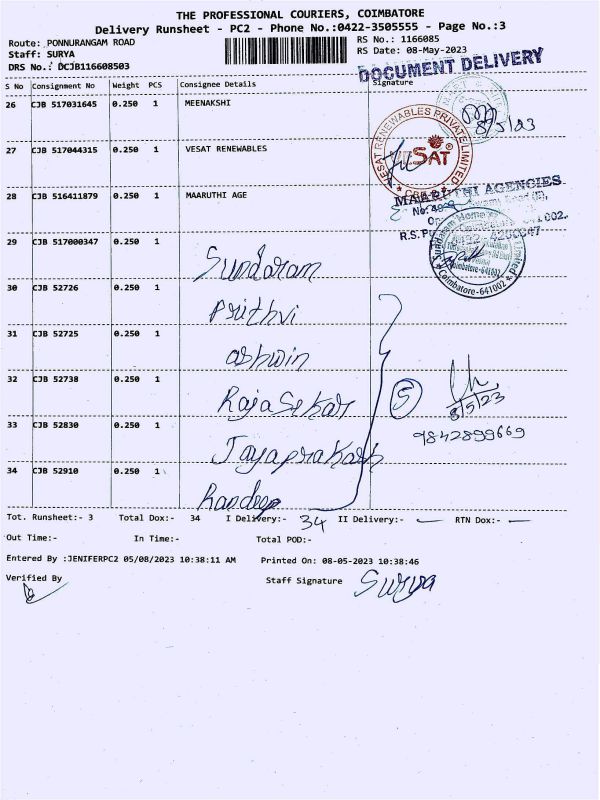 THE PROFESSIONAL COURIERS, COIMBATORE
Delivery Runsheet - PC2 - Phone No.:0422-3505555 - Page No.:3
Route: PONNURANGAM ROAD
RS No.: 1166085
Staff: SURYA
RS Date: 08-May-2023
DRS No.: DCJB116608503
DOCUMENT DELIVERY
S No Consignment No Weight PCS Consignee Details Signature
26 CJB 517031645 0.250 1 MEENAKSHI
8/5/23
27 CJB 517044315 0.250 1 VESAT RENEWABLES
VESAT RENEWABLES PRIVATE LIMITED
VESAT
28 CJB 516411879 0.250 1 MAARUTHI AGE
MAARUTHI AGENCIES
R.S.
29 CJB 517000347 0.250 1 Sundaram
Coimbatore-641002
30 CJB 52726 0.250 1 Prithvi
31 CJB 52725 0.250 1 ashwin
32 CJB 52738 0.250 1 RajaSekar
5
8/5/23
33 CJB 52830 0.250 1 Jayaprakash
9842899669
34 CJB 52910 0.250 1 Randeep
Tot. Runsheet:- 3 Total Dox:- 34 I Delivery:- 34 II Delivery:- — RTN Dox:- —
Out Time:- In Time:- Total POD:-
Entered By :JENIFERPC2 05/08/2023 10:38:11 AM Printed On: 08-05-2023 10:38:46
Verified By Staff Signature Surya